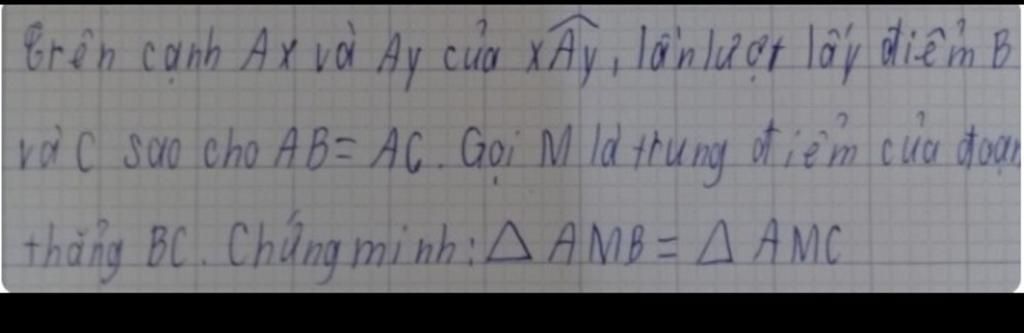 Trên cạnh Ax và Ay của xÂy, lần lượt lấy điểm B
và C sao cho AB = AC. Gọi M là trung điểm của đoạn
thẳng BC. Chứng minh: △ AMB = △ AMC